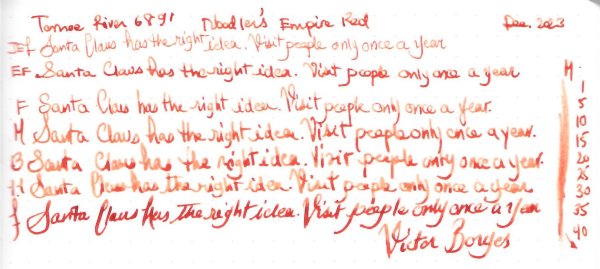 Tomoe River 68g' Noodler's Empire Red Dec. 2023
EF Santa Claus has the right idea. Visit people only once a year
EF Santa Claus has the right idea. Visit people only once a year
F Santa Claus has the right idea. Visit people only once a year.
M Santa Claus has the right idea. Visit people only once a year.
B Santa Claus has the right idea. Visit people only once a year.
Santa Claus has the right idea. Visit people only once a year
Santa Claus has the right idea. Visit people only once a year
Victor Borges
M
1
5
10
15
20
25
30
35
40